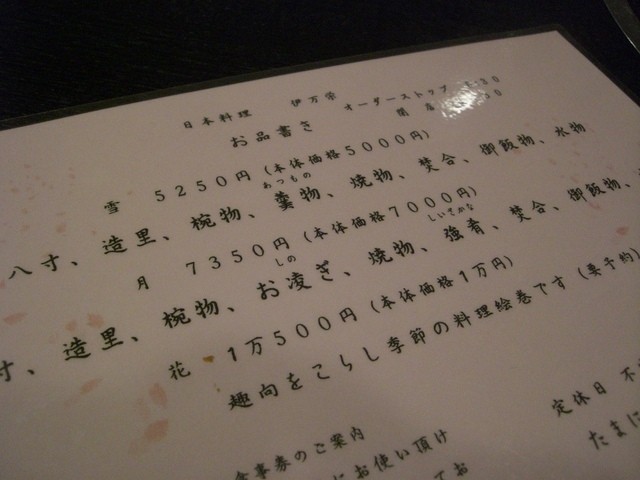 日本料理 伊万栄 オーダーストップ
お品書き 閉店
雪 5250円(本体価格5000円)
八寸、造里、椀物、羹物、焼物、焚合、御飯物、水物
あつもの
月 7350円(本体価格7000円)
寸、造里、椀物、お凌ぎ、焼物、強肴、焚合、御飯物、
しの しいざかな
花 1万500円(本体価格1万円)
趣向をこらし季節の料理絵巻です(要予約)
食事券のご案内 定休日 不
にお使い頂け たまに
てお